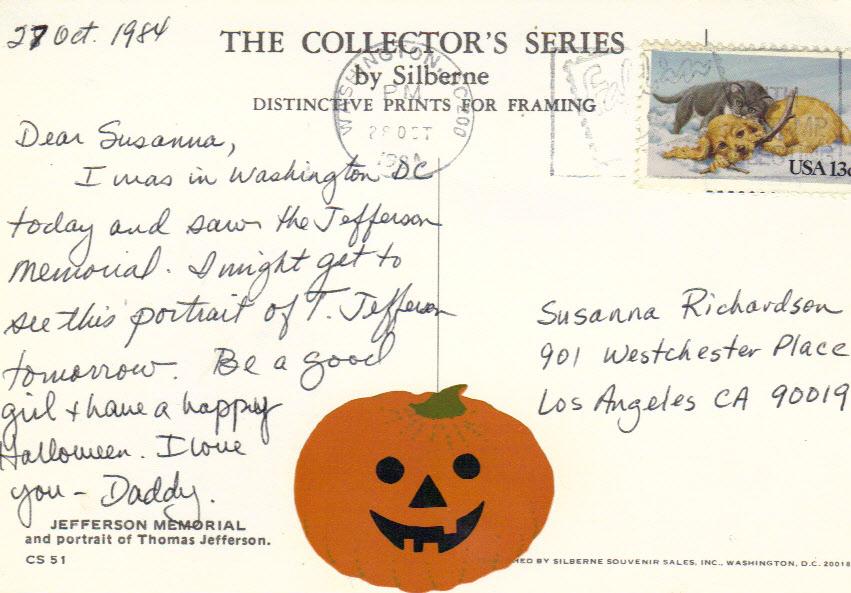 27 Oct. 1984
THE COLLECTOR'S SERIES
by Silberne
DISTINCTIVE PRINTS FOR FRAMING
WASHINGTON, DC 200
PM
28 OCT
1984
USA 13c
Dear Susanna,
I was in Washington DC
today and saw the Jefferson
Memorial. I might get to
see this portrait of T. Jefferson
tomorrow. Be a good
girl + have a happy
Halloween. I love
you - Daddy.
Susanna Richardson
901 Westchester Place
Los Angeles CA 90019
JEFFERSON MEMORIAL
and portrait of Thomas Jefferson.
CS 51
BY SILBERNE SOUVENIR SALES, INC., WASHINGTON, D.C. 20018